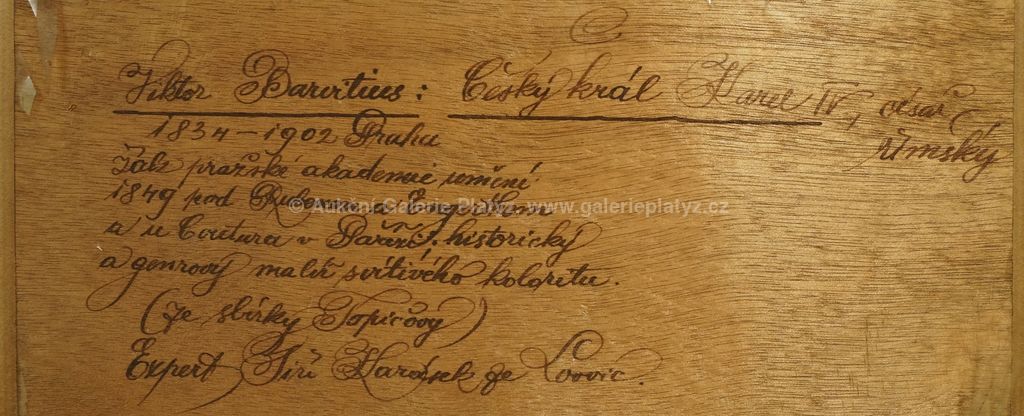 Viktor Barvitius: Český král Karel IV, císař římský
1834-1902 Praha
Žák pražské akademie umění
1849 pod Rubenem a Engerthem
© Aukční Galerie Platýz www.galerieplatyz.cz
a u Coutura v Paříži, historický
a genrový malíř svítivého koloritu.
(Ze sbírky Topičovy)
Expert Jiří Karásek ze Lvovic.